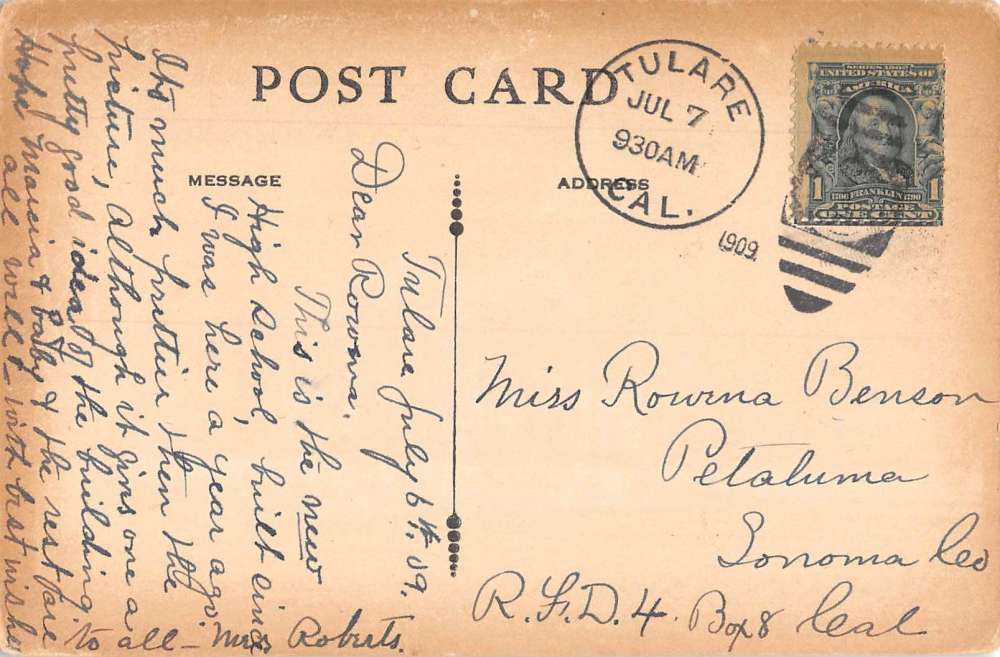 POST CARD
MESSAGE
ADDRESS
TULARE
JUL 7
930AM
CAL.
1909
SERIES 1902
UNITED STATES OF
AMERICA
1 1
1706 FRANKLIN 1790
POSTAGE
ONE CENT
Tulare July 6th. 09.
Dear Rowena.
This is the new
High School, built since
I was here a year ago.
Its much prettier then the
picture, although it gives one a
pretty good idea of the building.
Hope Marcia & baby & the rest are
all well - with best wishes
to all - Mrs Roberts.
Miss Rowena Benson
Petaluma
Sonoma Co
R.F.D. 4. Box 8 Cal